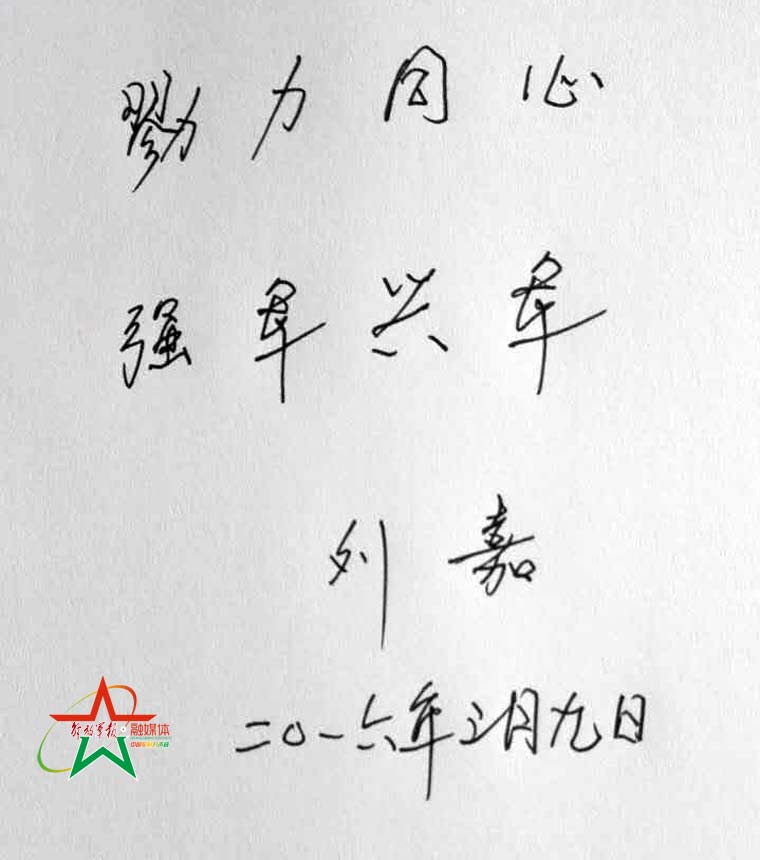 勠力同心
强军兴军
刘嘉
二〇一六年三月九日
解放军报 融媒体